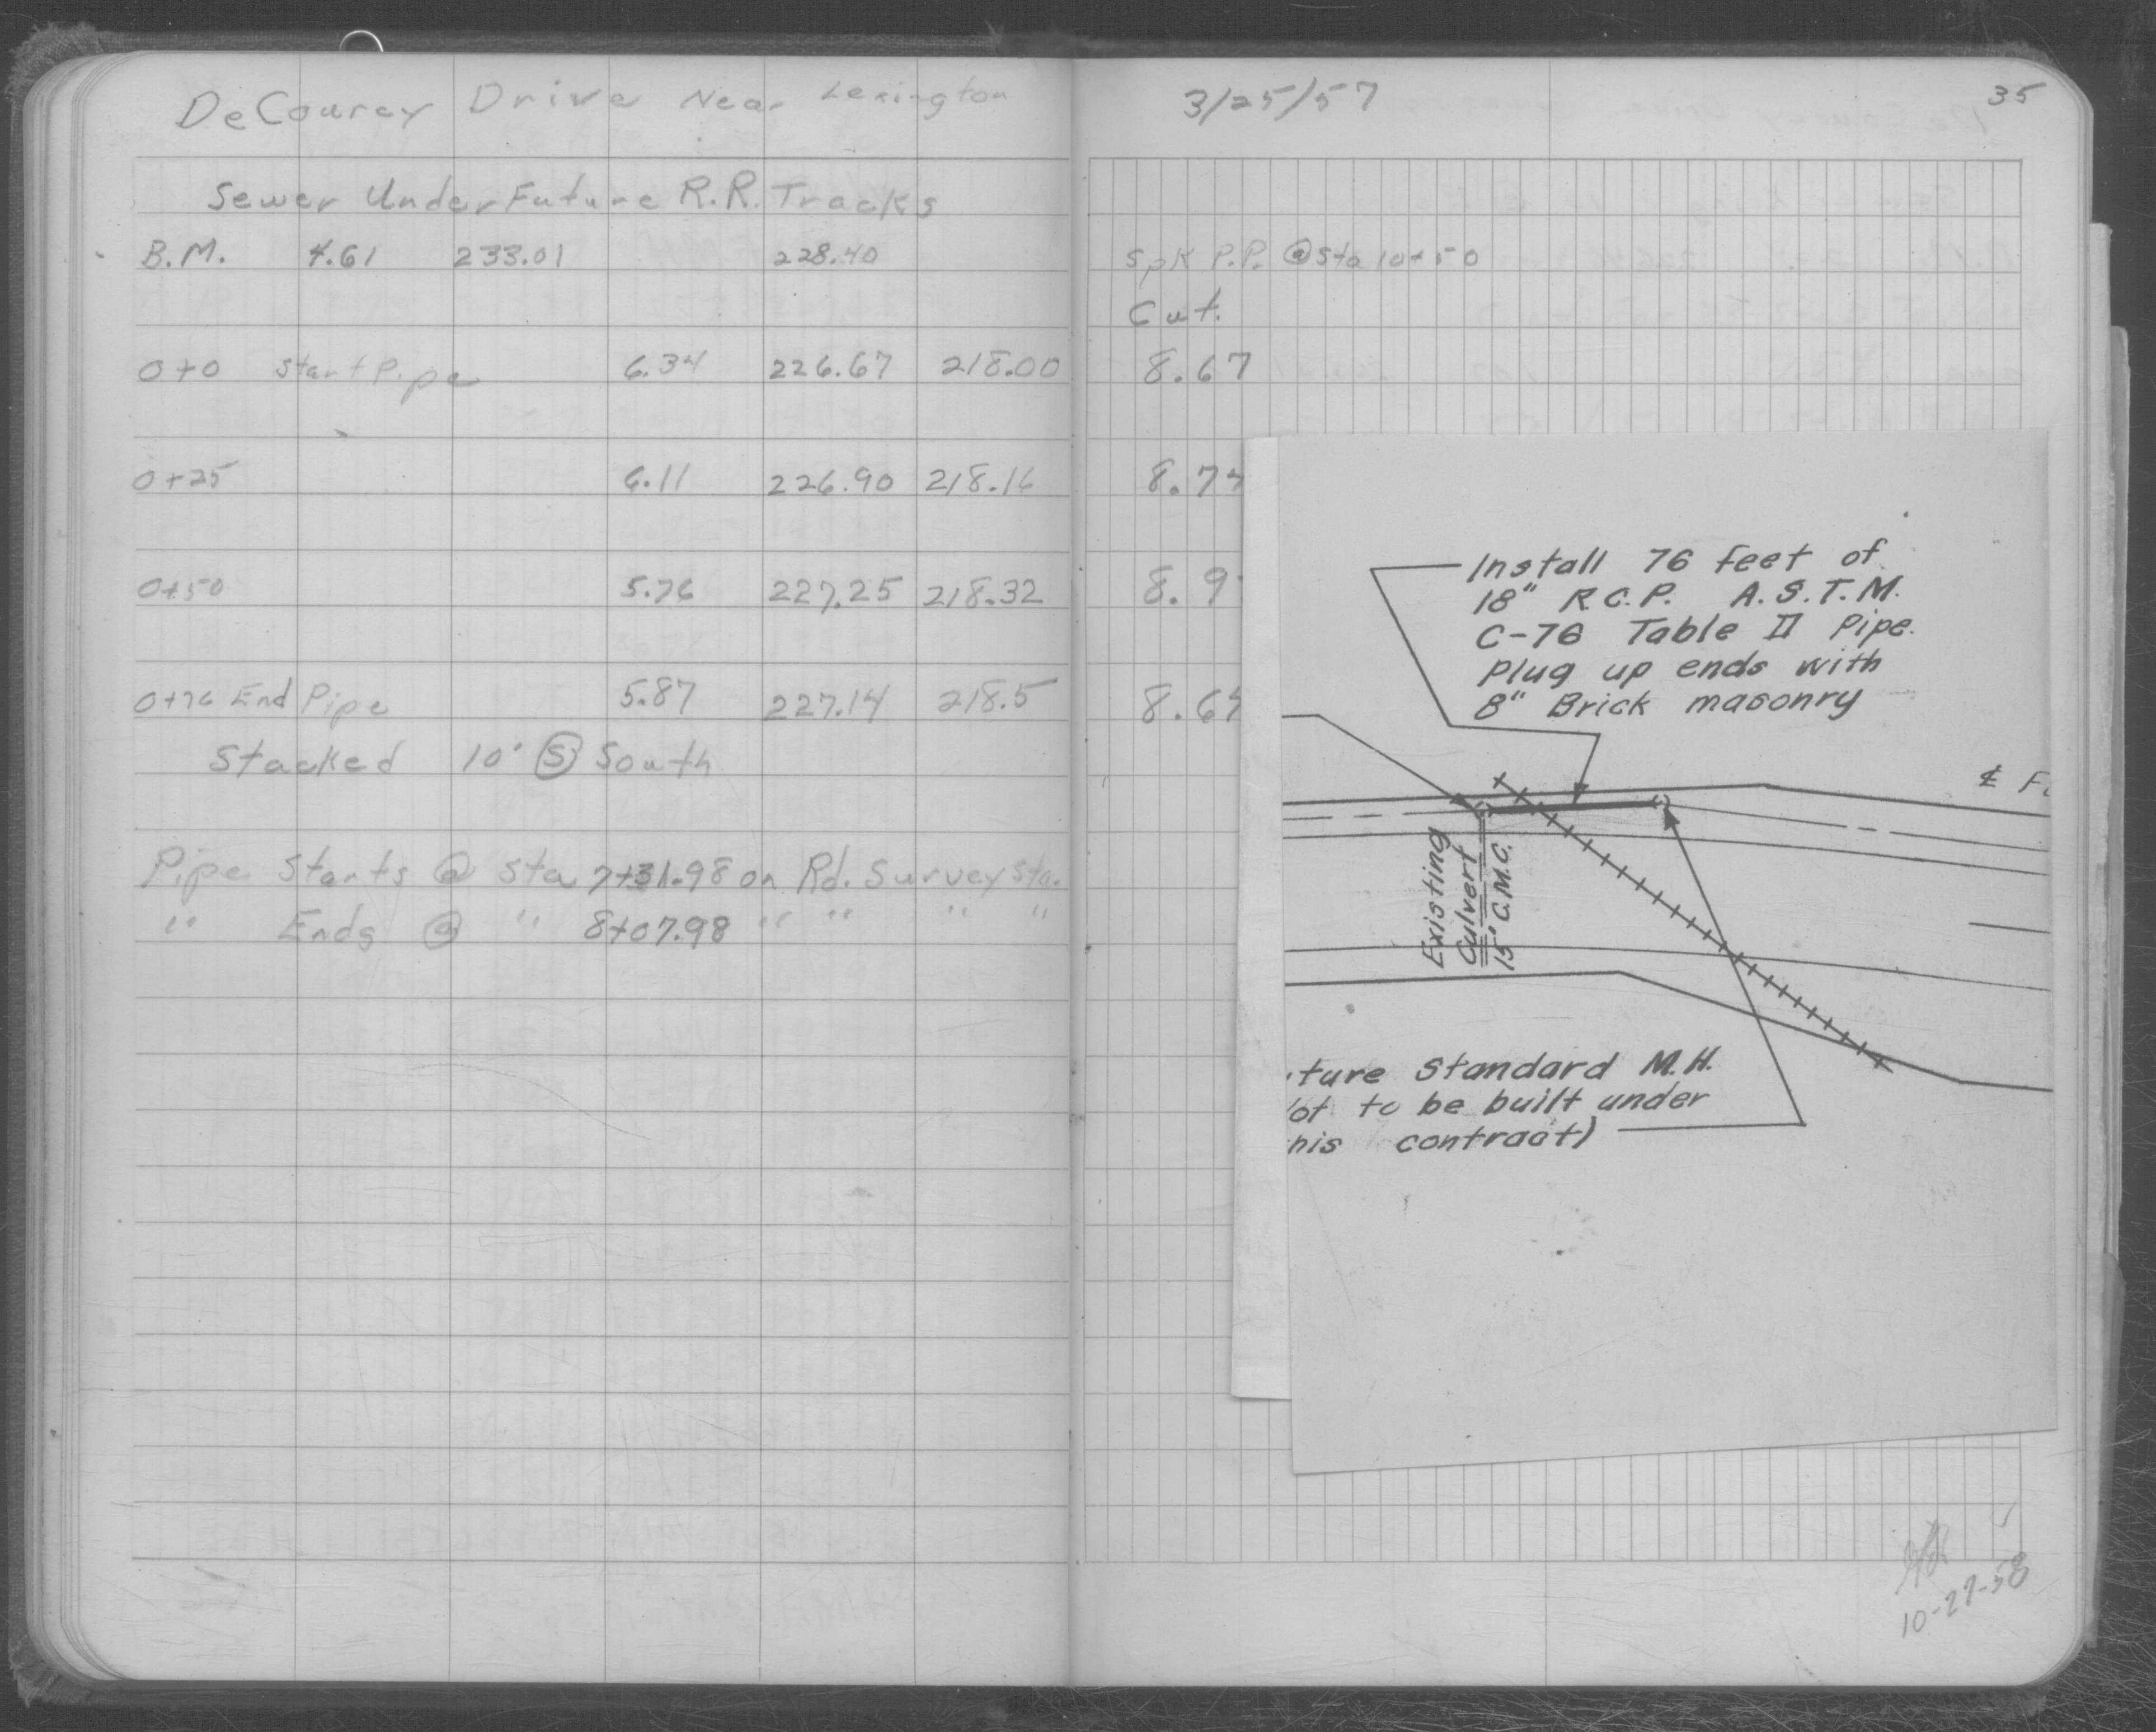 DeCourcy Drive Near Lexington
3/25/57
35
Sewer Under Future R.R. Tracks
B.M. 4.61 233.01 228.40 Spk P.P. @ Sta 10+50
Cut.
0+0 Start Pipe 6.34 226.67 218.00 8.67
0+25 6.11 226.90 218.16 8.74
0+50 5.76 227.25 218.32 8.9
0+76 End Pipe 5.87 227.14 218.5 8.64
Stacked 10' S South
Pipe Starts @ Sta 7+31.98 on Rd. Survey Sta.
" Ends @ " 8+07.98 " " " "
Install 76 feet of
18" R.C.P. A.S.T.M.
C-76 Table II Pipe.
Plug up ends with
8" Brick masonry
℄ F
Existing
Culvert
15" C.M.C.
ture Standard M.H.
ot to be built under
his contract)
10-27-58